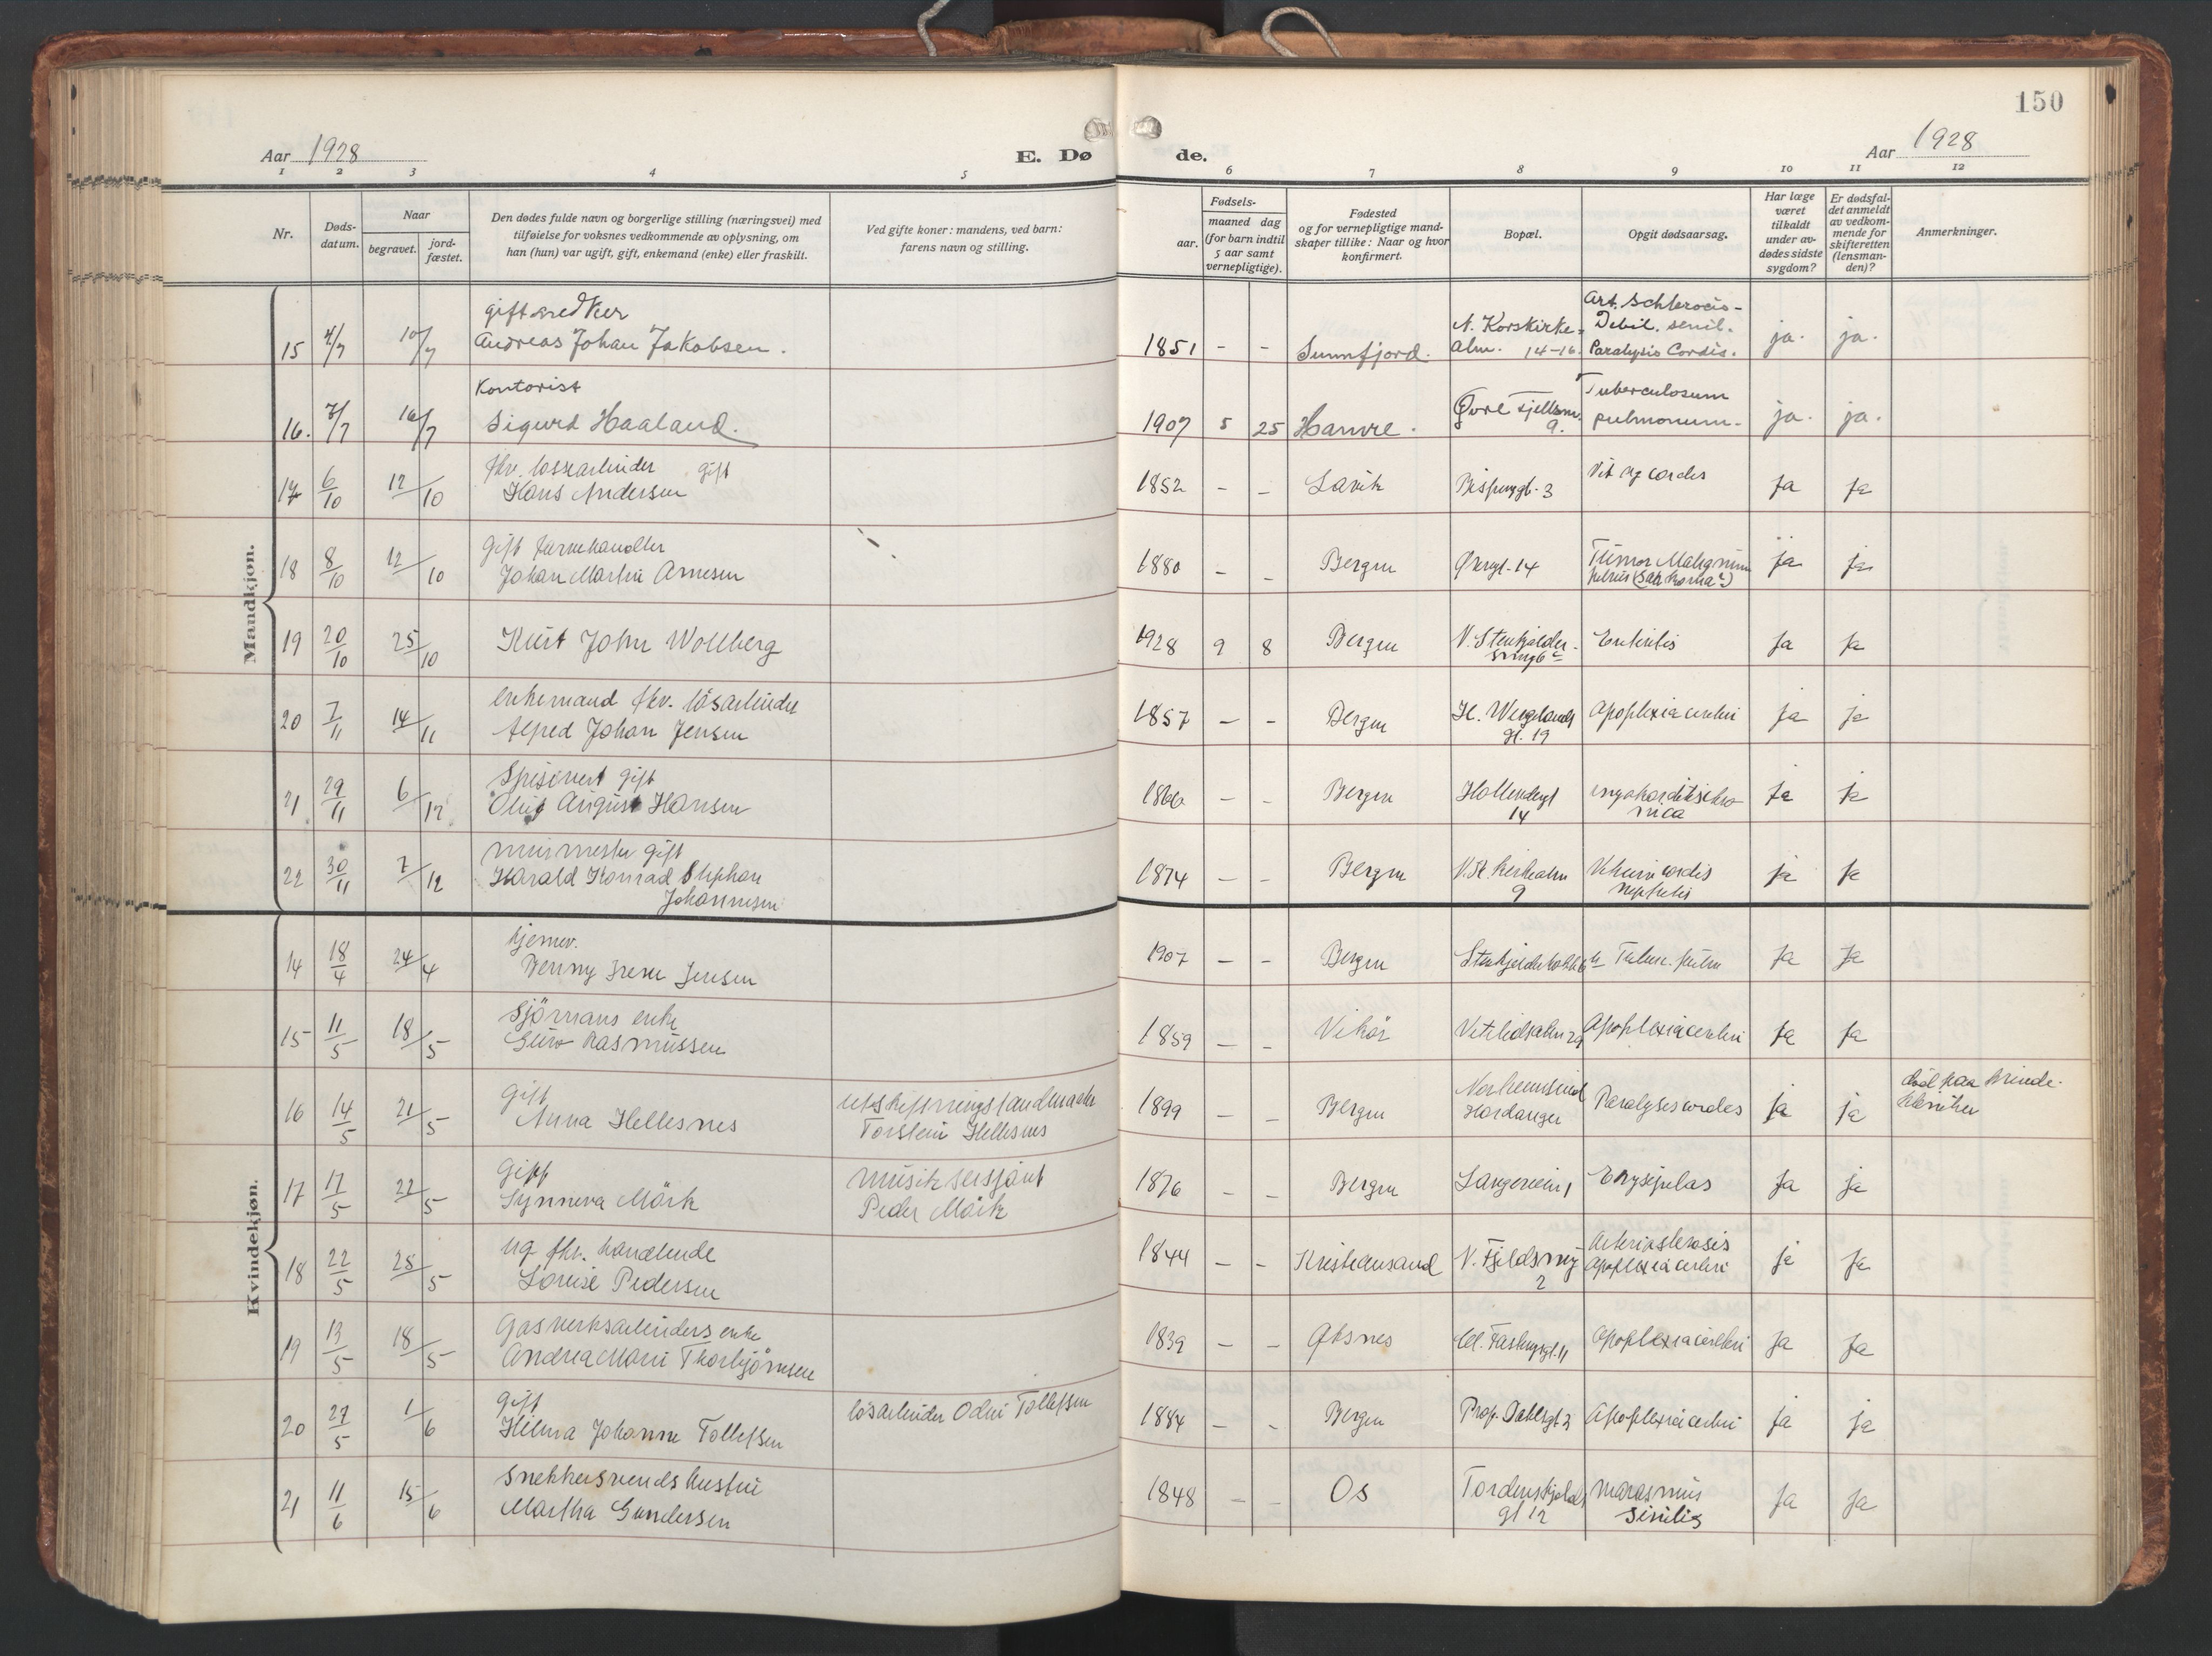 150
Aar 1928
E. Dø
de.
Aar 1928
1 2 3 4 5 6 7 8 9 10 11 12
Nr.
Døds-
datum.
Naar
begravet.
jord-
fæstet.
Den dødes fulde navn og borgerlige stilling (næringsvei) med
tilføielse for voksnes vedkommende av oplysning, om
han (hun) var ugift, gift, enkemand (enke) eller fraskilt.
Ved gifte koner: mandens, ved barn:
farens navn og stilling.
Fødsels-
aar.
maaned dag
(for barn indtil
5 aar samt
vernepligtige).
Fødested
og for vernepligtige mand-
skaper tillike: Naar og hvor
konfirmert.
Bopæl.
Opgit dødsaarsag.
Har læge
været
tilkaldt
under av-
dødes sidste
sygdom?
Er dødsfal-
det anmeldt
av vedkom-
mende for
skifteretten
(lensman-
den)?
Anmerkninger.
Mandkjøn.
gift
Art. Schlerocis-
15 4/7 10/7 Andreas Johan Jakobsen. 1851 - - Sunnfjord. N. Korskirke- Debil. senil. ja. ja.
alm. 14-16. Paralysis Cordis.
Kontorist
Tuberculosum
16. 7/7 16/7 Sigurd Haaland. 1907 5 25 Hamre. Øvre Fjellsm. 9. pulmonum- ja. ja.
fhv. gift
17 6/10 12/10 Hans Andersen 1852 - - Lavik Bispenggt. 3 Vit. org cordis ja ja
Gift farvehandler
18 8/10 12/10 Johan Martin Arnesen 1880 - - Bergen 14 Tumor Malignum ja ja
19 20/10 25/10 Kurt John Wollberg 1928 9 8 Bergen V. Stenkjelder- Enteritis ja ja
enkemand fhv. løsarbeider
20 7/11 14/11 Alfred Johan Jensen 1857 - - Bergen H. Wergelands Apoplexia cerebri ja ja
gt. 19
Spisevert gift
21 29/11 6/12 Oluf August Hansen 1866 - - Bergen Hollendergt 14 myokarditis chro- ja ja
nica
murmester gift
22 30/11 7/12 Harald Konrad Stephan 1874 - - Bergen 9 Vitium cordis ja ja
Johannesen nephritis
Kvindekjøn.
hjemv.
14 18/4 24/4 Jenny Irene Jensen 1907 - - Bergen Tuberc. pulm ja ja
Sjømans enke
15 11/5 18/5 Guro Rasmussen 1859 - - Vikør Apoplexia cerebri ja ja
Gift
16 14/5 21/5 Anna Hellesnes utskiftningslandmaaler 1899 - Bergen Norheimsund Paralyses cordes ja ja død paa kvinde-
Torstein Hellesnes Hardanger klinikken
Gift
17 17/5 22/5 Synneva Mörk musik sersjant 1876 - - Bergen Langeveien 1 Erysipelas ja ja
Peder Mörk
ug fhv. handlende
18 22/5 25/5 Lovise Pedersen 1844 - - Kristiansand V. Fjeldsmug 2 Arteriosklerosis ja ja
Apoplexia cerebri
Gasverksarbeiders enke
19 13/5 18/5 Andrea Marie Thorbjörnsen 1839 - - Øksnes Apoplexia cerebri ja ja
Gift
20 27/5 1/6 Hilma Johanne Tollefsen løsarbeider Odin Tollefsen 1884 - - Bergen Prof. Dahlsgt 3 Apoplexia cerebri ja ja
Snekkersvends hustru
21 11/6 15/6 Martha Gundersen 1848 - - Os Tordenskjolds Marasmus ja ja
gt 12 sinilis